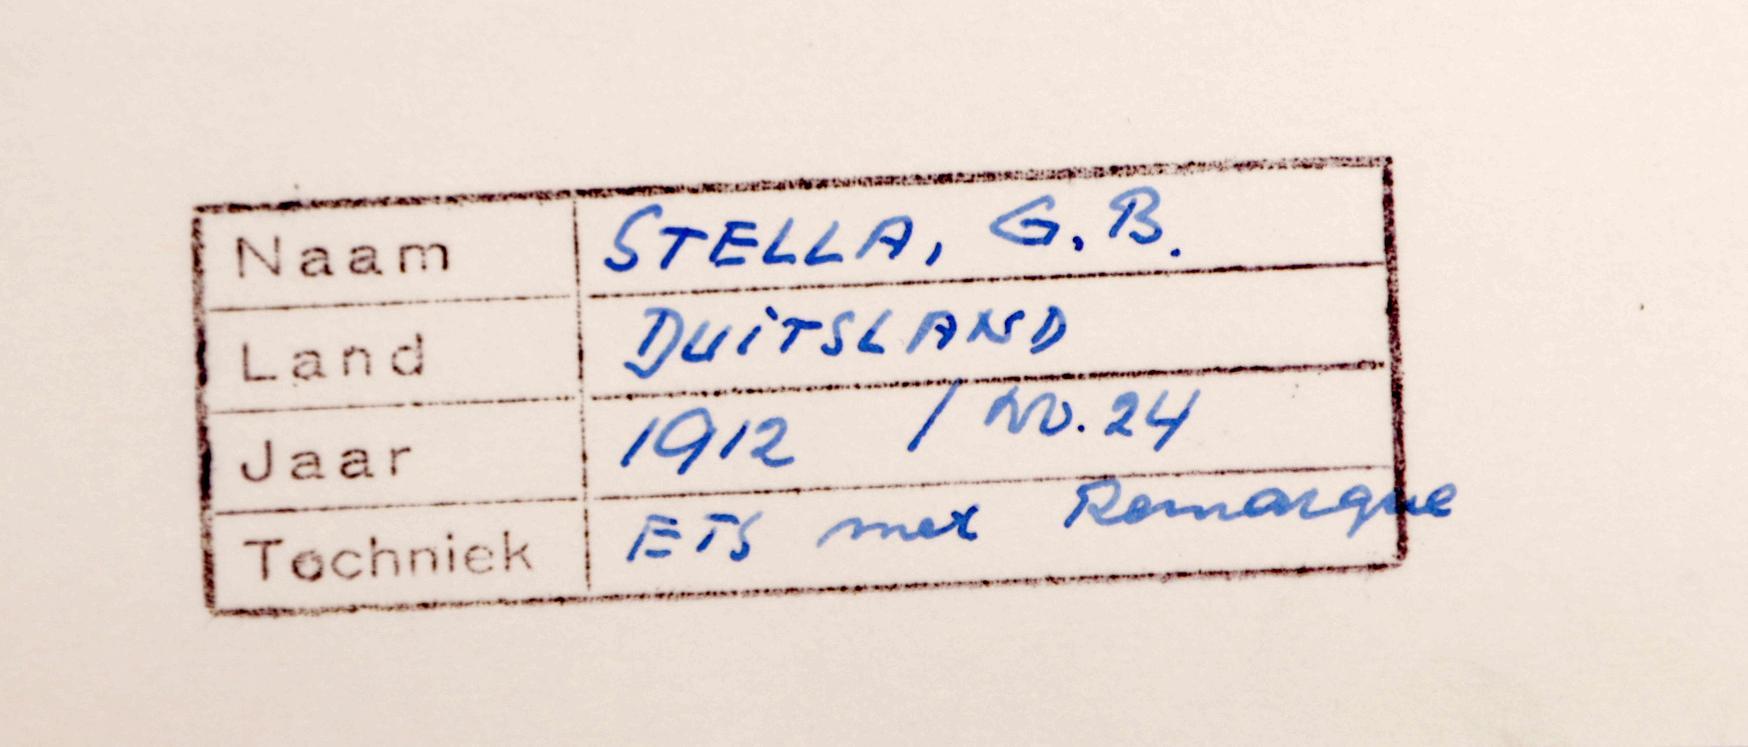 Naam STELLA, G.B.
Land DUITSLAND
Jaar 1912 / No. 24
Techniek ETS met Remarque